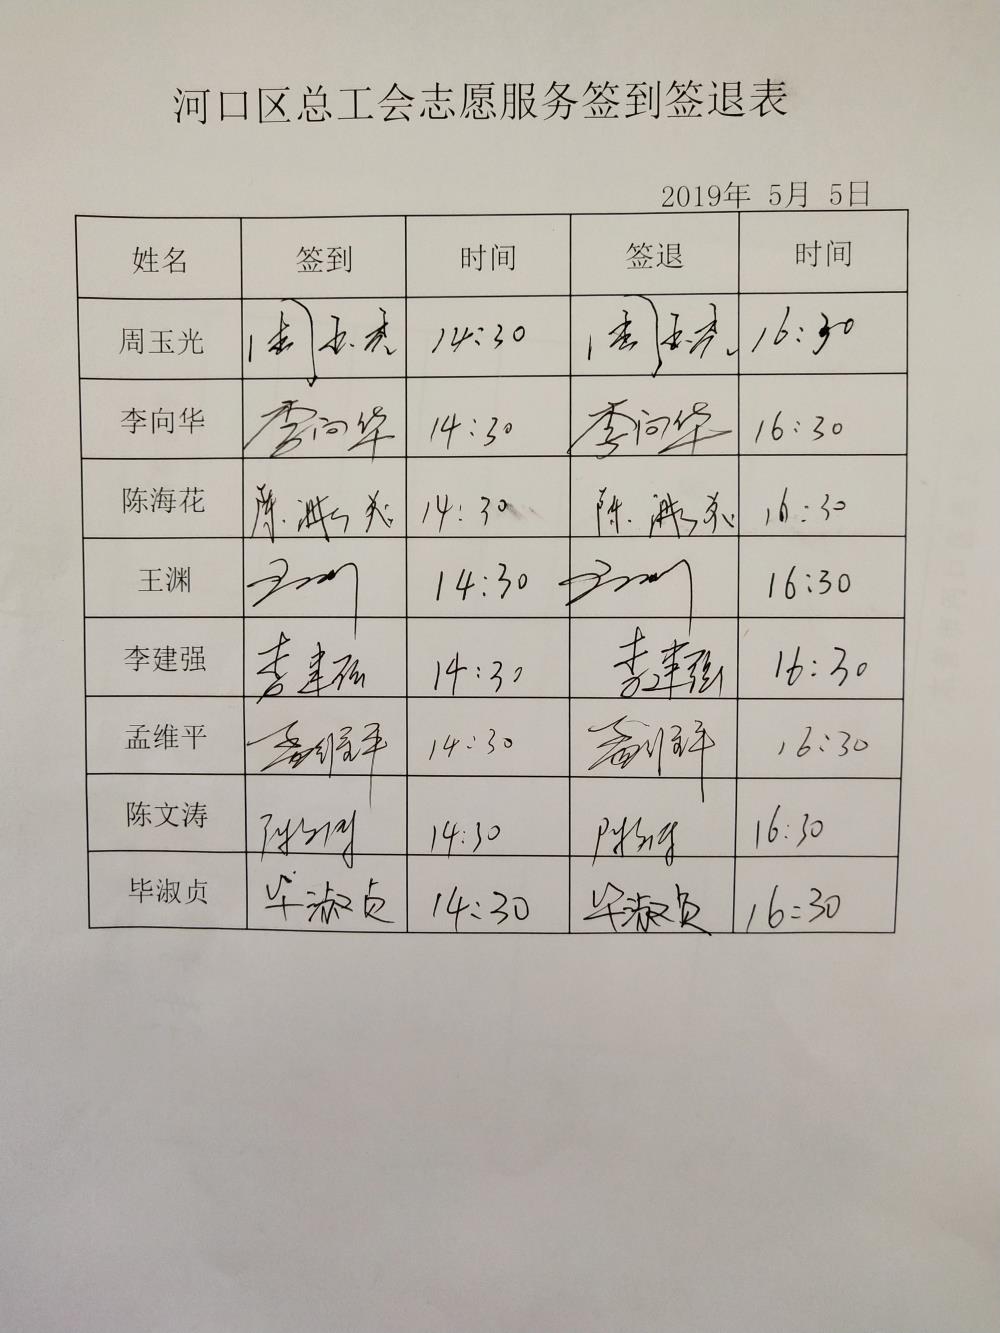 河口区总工会志愿服务签到签退表
2019年 5月 5日
姓名 签到 时间 签退 时间
周玉光 周玉光 14:30 周玉光 16:30
李向华 李向华 14:30 李向华 16:30
陈海花 陈海花 14:30 陈海花 16:30
王渊 王渊 14:30 王渊 16:30
李建强 李建强 14:30 李建强 16:30
孟维平 孟维平 14:30 孟维平 16:30
陈文涛 陈文涛 14:30 陈文涛 16:30
毕淑贞 毕淑贞 14:30 毕淑贞 16:30